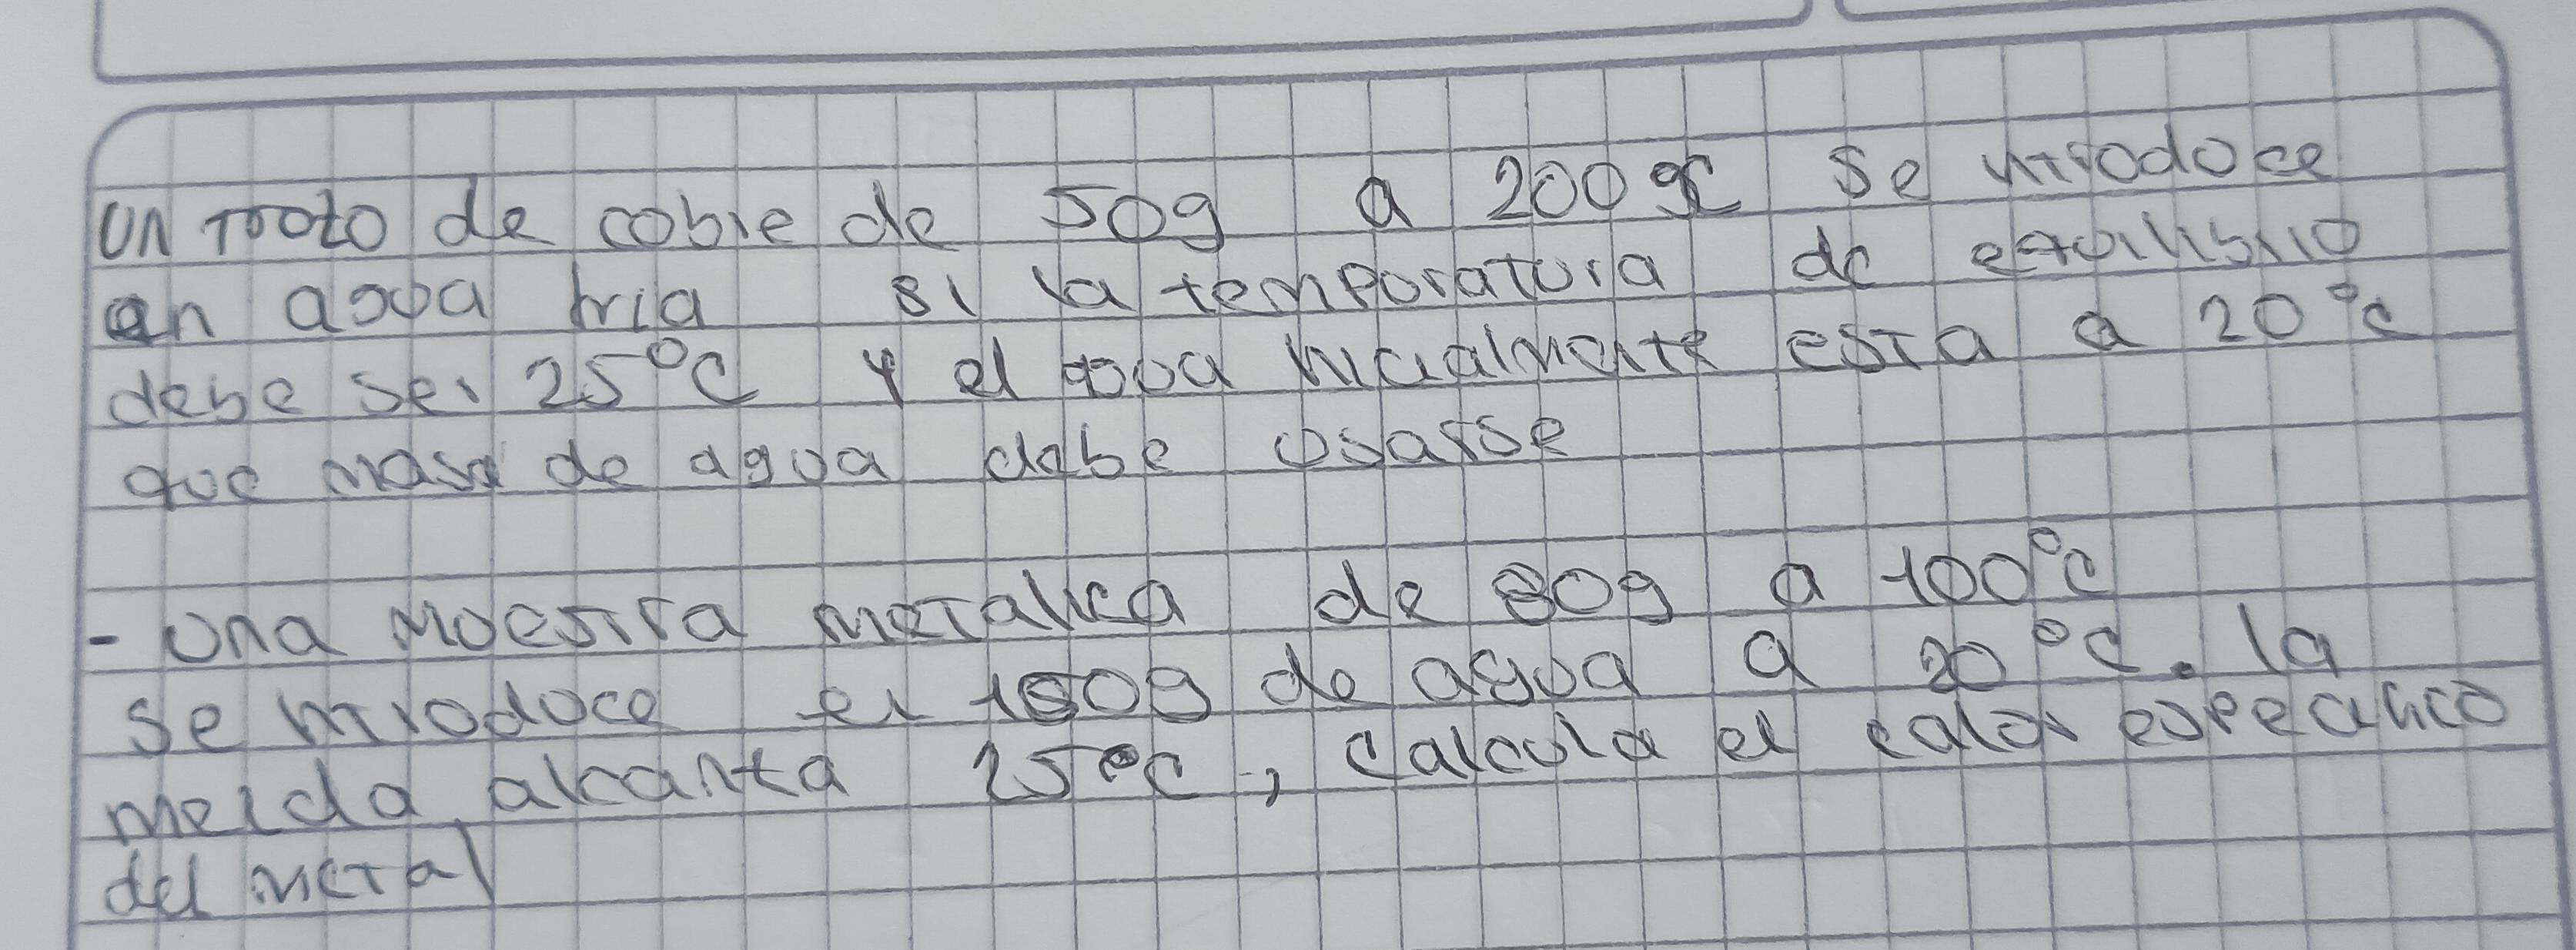 Un trozo de cobre de 50g a 200 °C se introduce
en agua fria si la temperatura de equilibrio
debe ser 25°C y el agua inicialmente esta a 20°C
que masa de agua debe usarse
- Una muestra metalica de 80g a 100°C
se introduce en 150g de agua a 20°C. la
mezcla alcanza 25°C, calcula el calor especifico
del metal